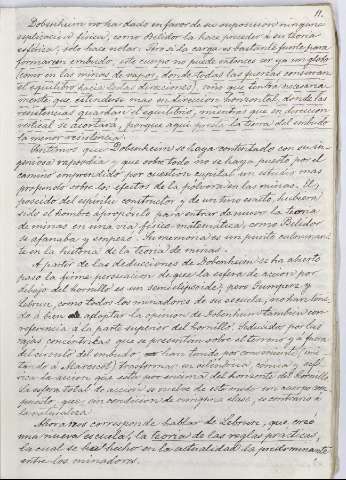 11.
Dobenheim no ha dado en favor de su suposicion ninguna
esplicacion física, como Belidor la hace preceder á su teoria
esférica; solo hace notar: Si ya la carga es bastante fuerte para
formar un embudo, este cuerpo no puede entonces ser ya un globo
(como en las minas de vapor, donde todas las fuerzas conservan
el equilibrio hácia todas direcciones), sino que tendrá necesaria
mente que estenderse mas en direccion horizontal, donde las
resistencias guardan el equilibrio, mientras que en direccion
vertical se acortará, porque aquí presta la tierra del embudo
la menor resistencia.
Sentimos que Dobenheim se haya contentado con su in-
geniosa rapsodia y que sobre todo no se haya puesto, por el
camino emprendido por cuestion capital en estudio mas
profundo sobre los efectos de la pólvora en las minas. El,
poseido del espíritu constructor y de un fino exalto, hubiera
sido el hombre apropósito para entrar de nuevo la teoria
de minas en una via físico-matemática, como Belidor
se afanaba y empezó. Su memoria es un punto culminan
te en la historia de la teoria de minas.
A partir de las deducciones de Dobenheim se ha abierto
paso la firme persuacion de que la esfera de accion por
debajo del hornillo es un semi-elipsoide; pero Gumpertz y
Lebrun, como todos los minadores de su escuela, no han teni-
do á bien adoptar la opinion de Dobenheim tambien con
referencia á la parte superior del hornillo. Inducidos por las
rajas concéntricas que se presentan sobre el terreno y á fuera
del círculo del embudo han tenido por conveniente (imi-
tando á Marescot) transformar en
rica la accion que está por encima del horizonte del hornillo.
La esfera total de accion se vuelve de este modo un cuerpo com
puesto que, sin condicion de ninguna clase, es contrario á
la naturaleza.
Ahora nos corresponde hablar de Lebrun, que creó
una nueva escuela, la teoria de las reglas prácticas,
la cual se ha hecho en la actualidad la predominante
entre los minadores.